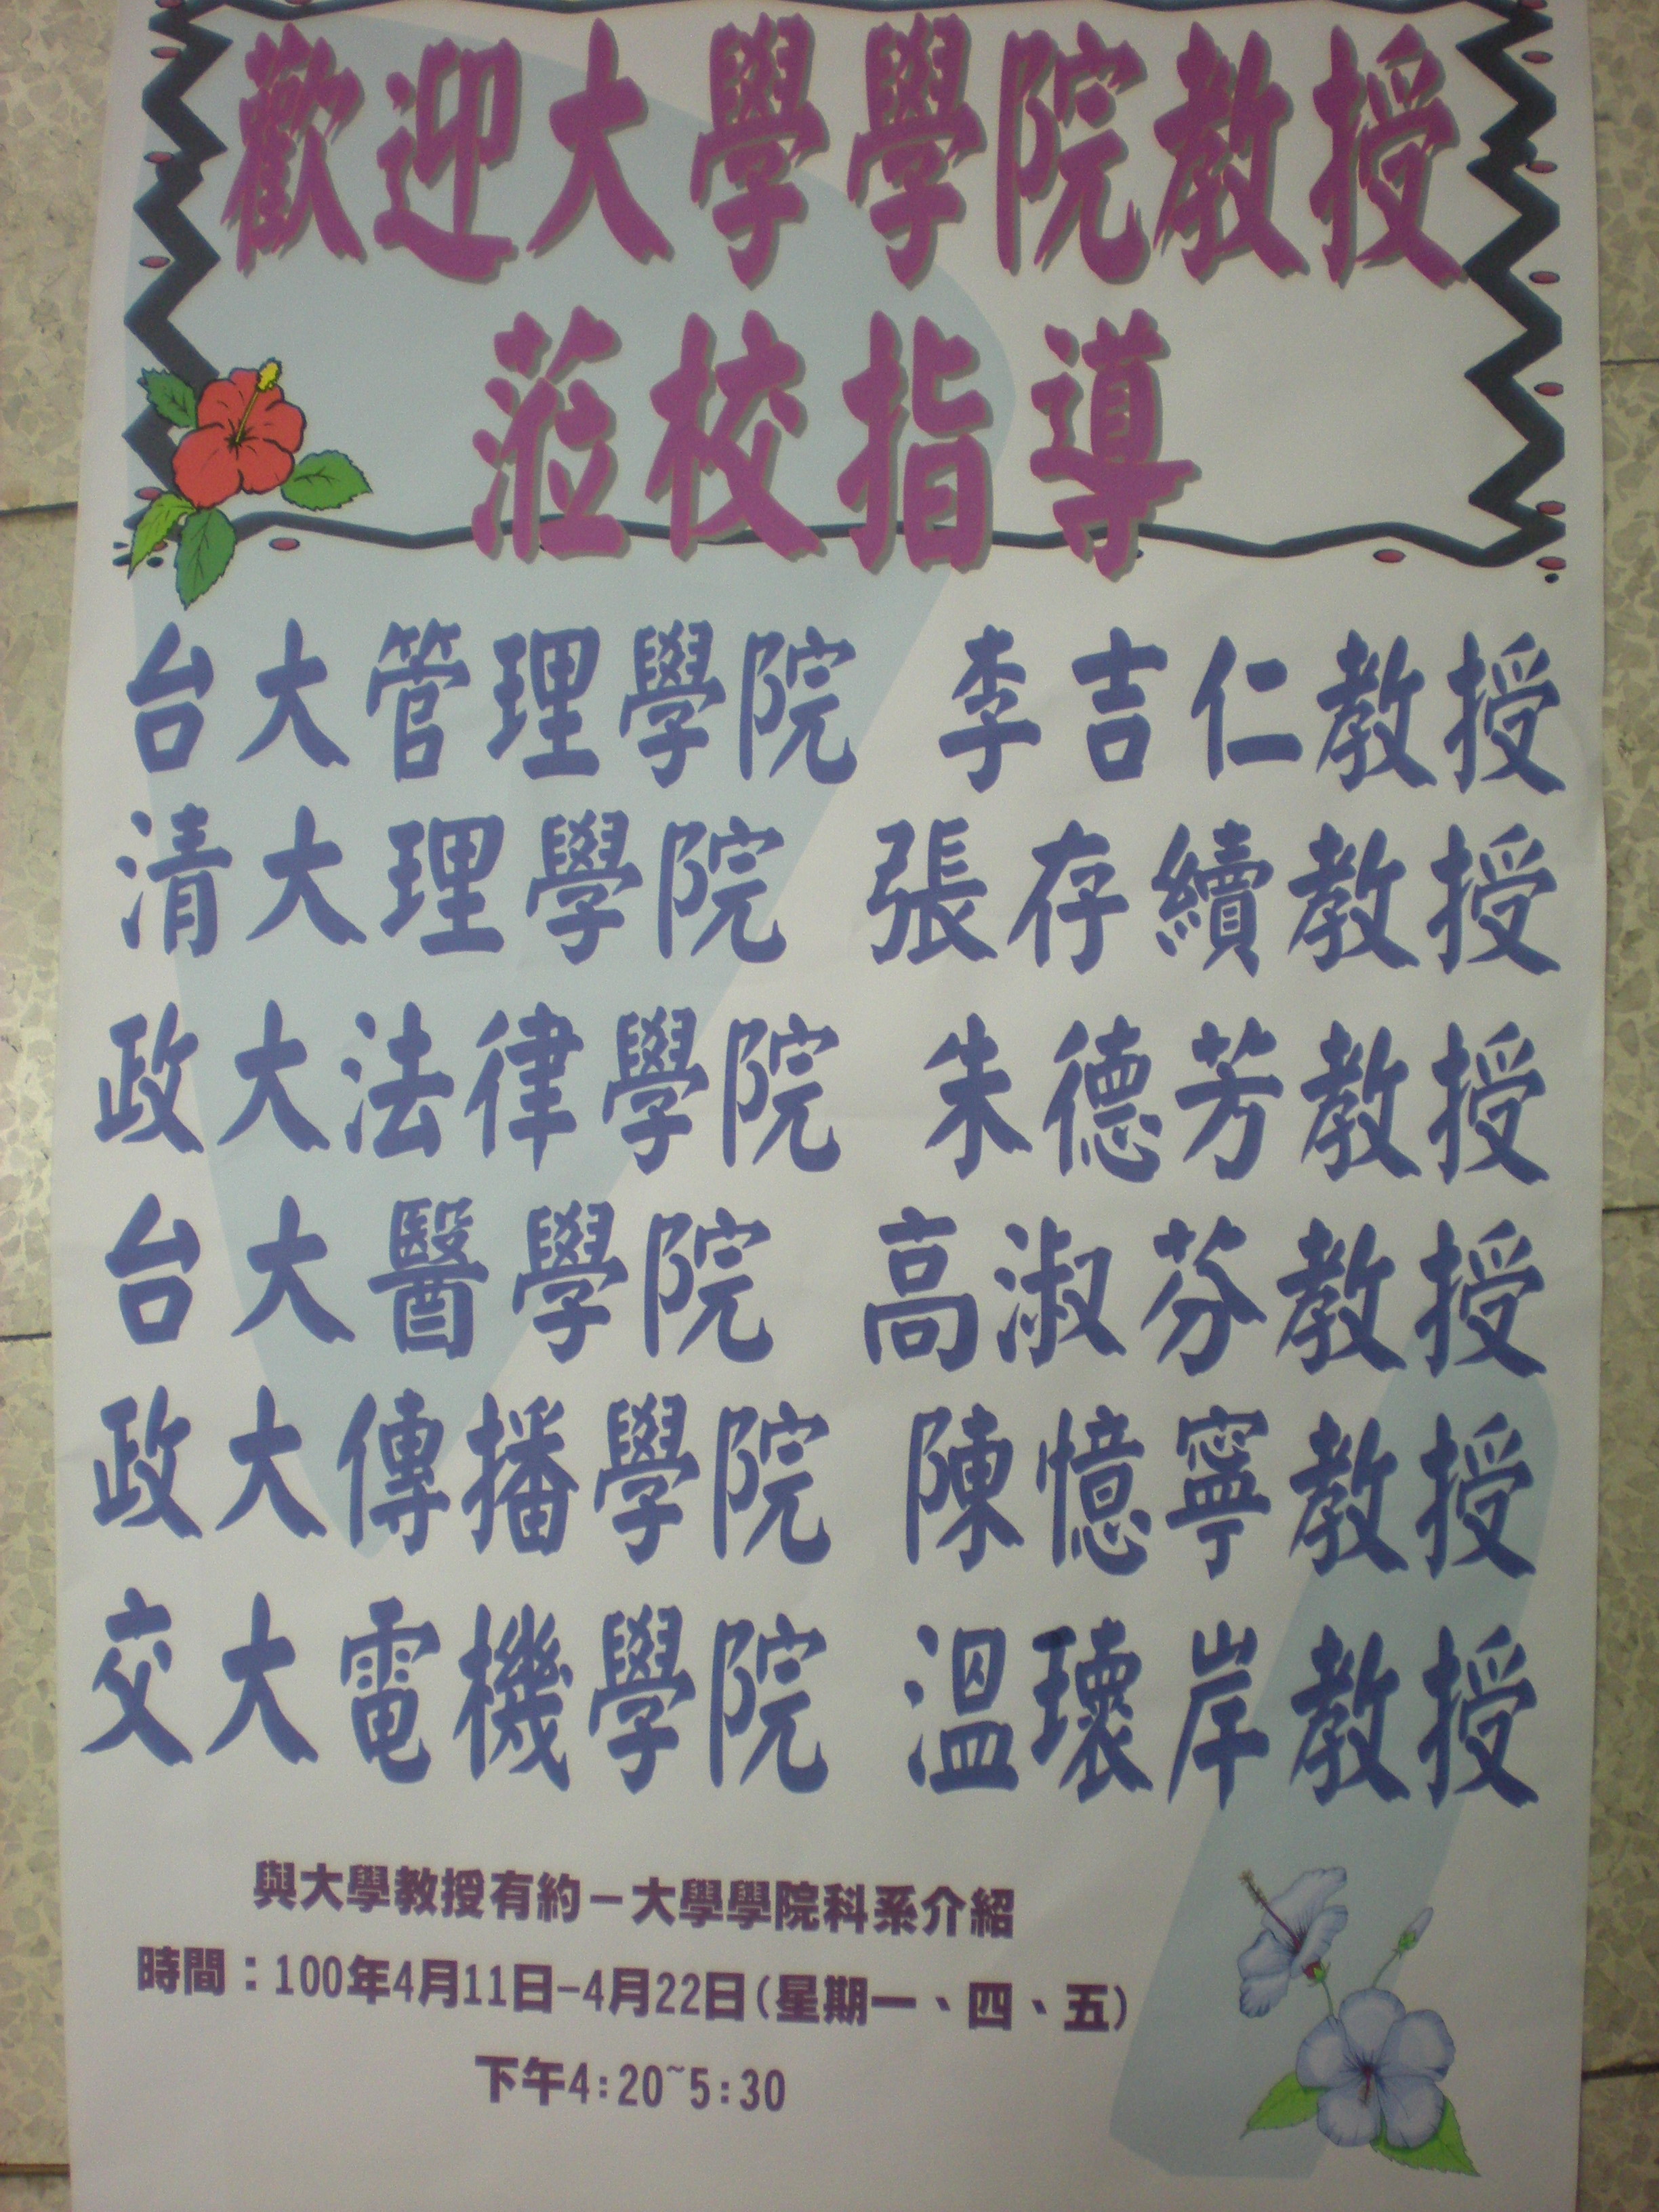 歡迎大學學院教授
蒞校指導
台大管理學院 李吉仁教授
清大理學院 張存續教授
政大法律學院 朱德芳教授
台大醫學院 高淑芬教授
政大傳播學院 陳憶寧教授
交大電機學院 溫瓌岸教授
與大學教授有約－大學學院科系介紹
時間：100年4月11日-4月22日(星期一、四、五)
下午4:20~5:30